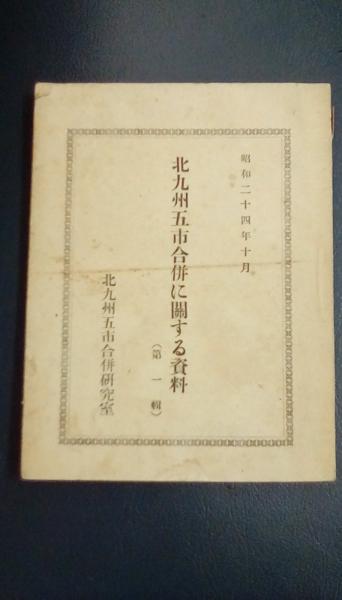 昭和二十四年十月
北九州五市合併に關する資料
（第一輯）
北九州五市合併研究室